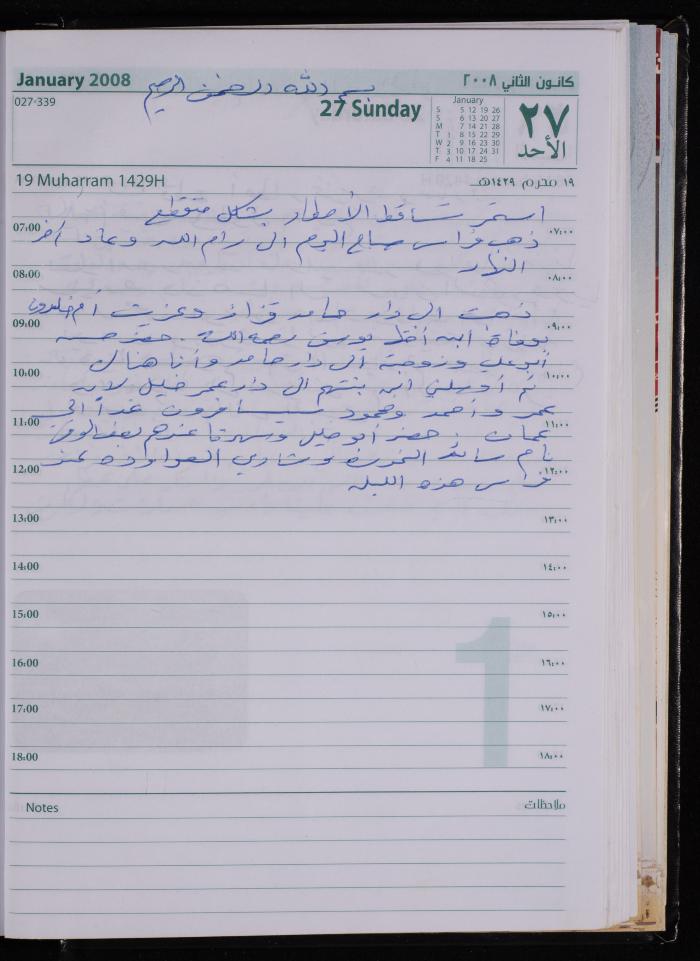 January 2008
كانون الثاني ٢٠٠٨
بسم الله الرحمن الرحيم
027-339
27 Sunday
January
S 5 12 19 26
S 6 13 20 27
M 7 14 21 28
T 1 8 15 22 29
W 2 9 16 23 30
T 3 10 17 24 31
F 4 11 18 25
٢٧
الأحد
19 Muharram 1429H
١٩ محرم ١٤٢٩هـ
استمر تساقط الأمطار بشكل متقطع
07:00 ٠٧:٠٠
ذهب فراس صباح اليوم الى رام الله وعاد آخر
النهار
08:00 ٠٨:٠٠
ذهبت الى دار حامد فزاز وعزيت أم خلدون
09:00 ٠٩:٠٠
بوفاة ابن أخيها يوسف رحمه الله . حضر حسن
أبو علي وزوجته الى دار حامد وأنا هناك
10:00 ١٠:٠٠
ثم أوصلني ابن بنتهم الى دار عمر خليل لأن
عمر وأحمد ومحمود سيسافرون غداً الى
11:00 ١١:٠٠
عمان . حضر أبو وسهرنا عندهم بعض الوقت
نام سائد وشادي العواوده عند
12:00 ١٢:٠٠
فراس هذه الليلة
13:00 ١٣:٠٠
14:00 ١٤:٠٠
15:00 ١٥:٠٠
1
16:00 ١٦:٠٠
17:00 ١٧:٠٠
18:00 ١٨:٠٠
Notes
ملاحظات